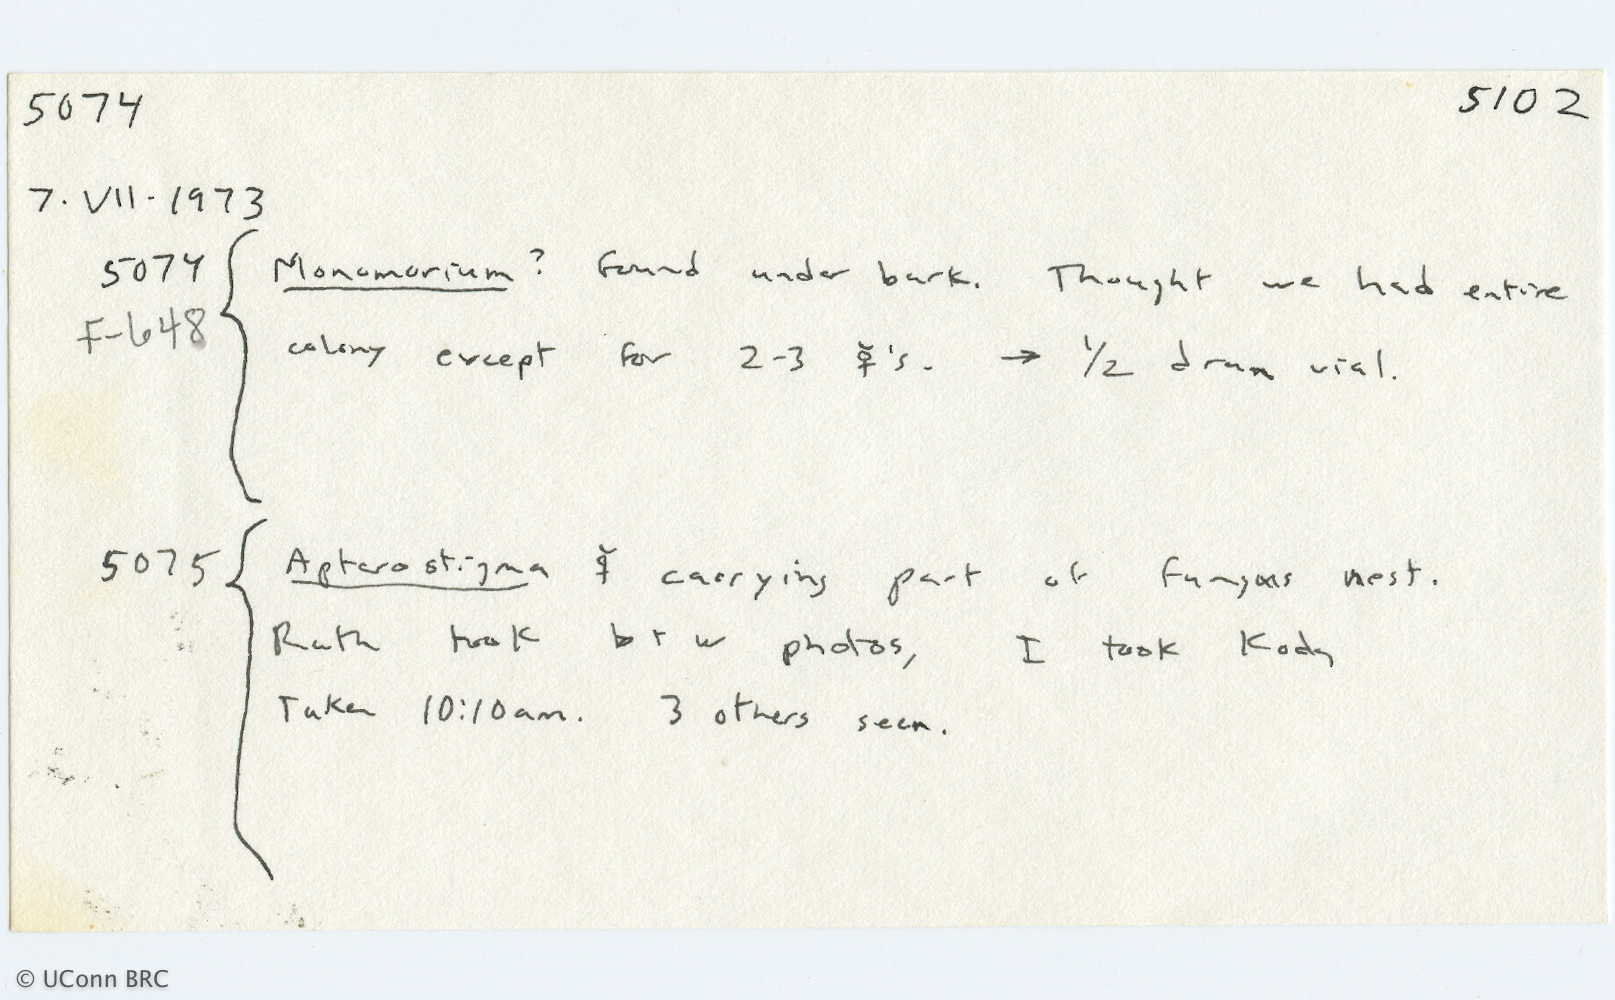 5074 5102
7. VII - 1973
5074 Monomorium? Found under bark. Thought we had entire
F-648 colony except for 2-3 ☿'s. → 1/2 dram vial.
5075 Apterostigma ☿ carrying part of fungus nest.
Ruth took b + w photos, I took Koda
Taken 10:10am. 3 others seen.
© UConn BRC